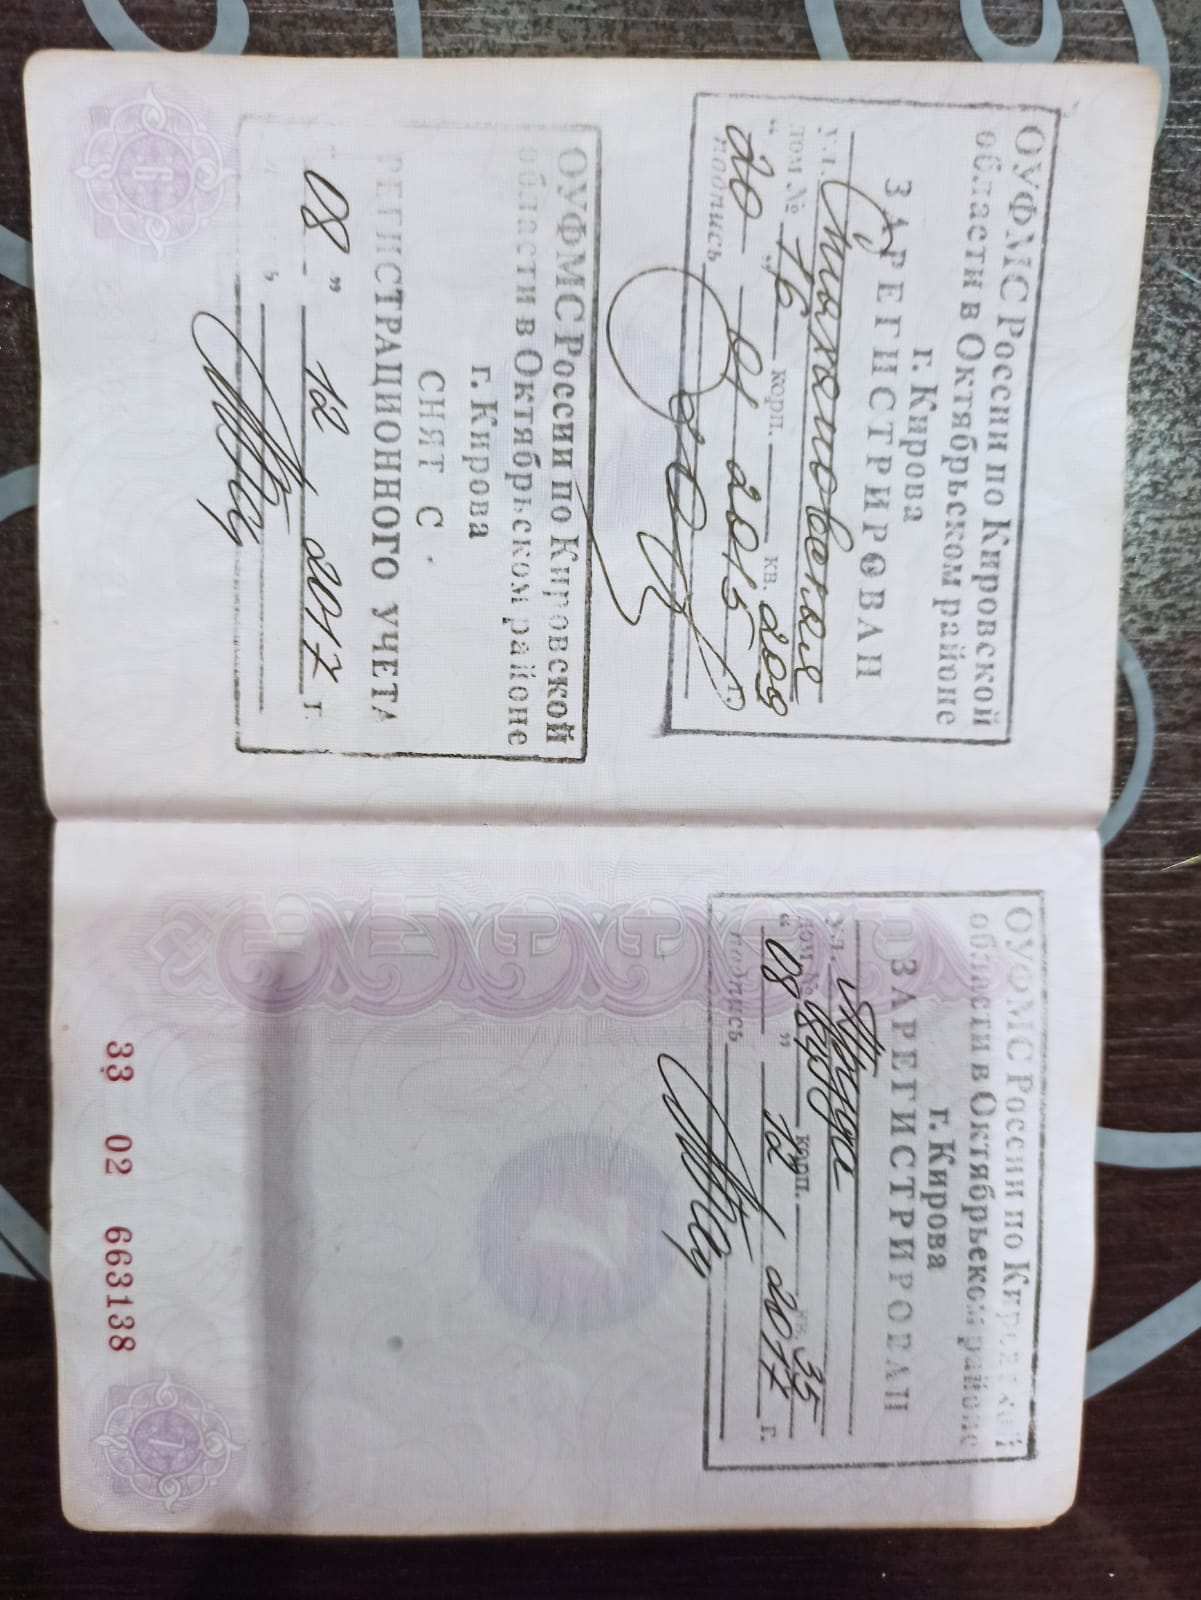 ОУФМС России по Кировской
области в Октябрьском районе
г. Кирова
ЗАРЕГИСТРИРОВАН
ул.
дом № 16 корп. кв. 209
“ 20 ” 01 2015 г.
подпись
ОУФМС России по Кировской
области в Октябрьском районе
г. Кирова
СНЯТ С
РЕГИСТРАЦИОННОГО УЧЕТА
08 ” 12 2017 г.
6
ОУФМС России по Кировской
области в Октябрьском районе
г. Кирова
ЗАРЕГИСТРИРОВАН
ул. Труда
дом № корп. кв. 35
“ 08 ” 12 2017 г.
подпись
7
33 02 663138
7